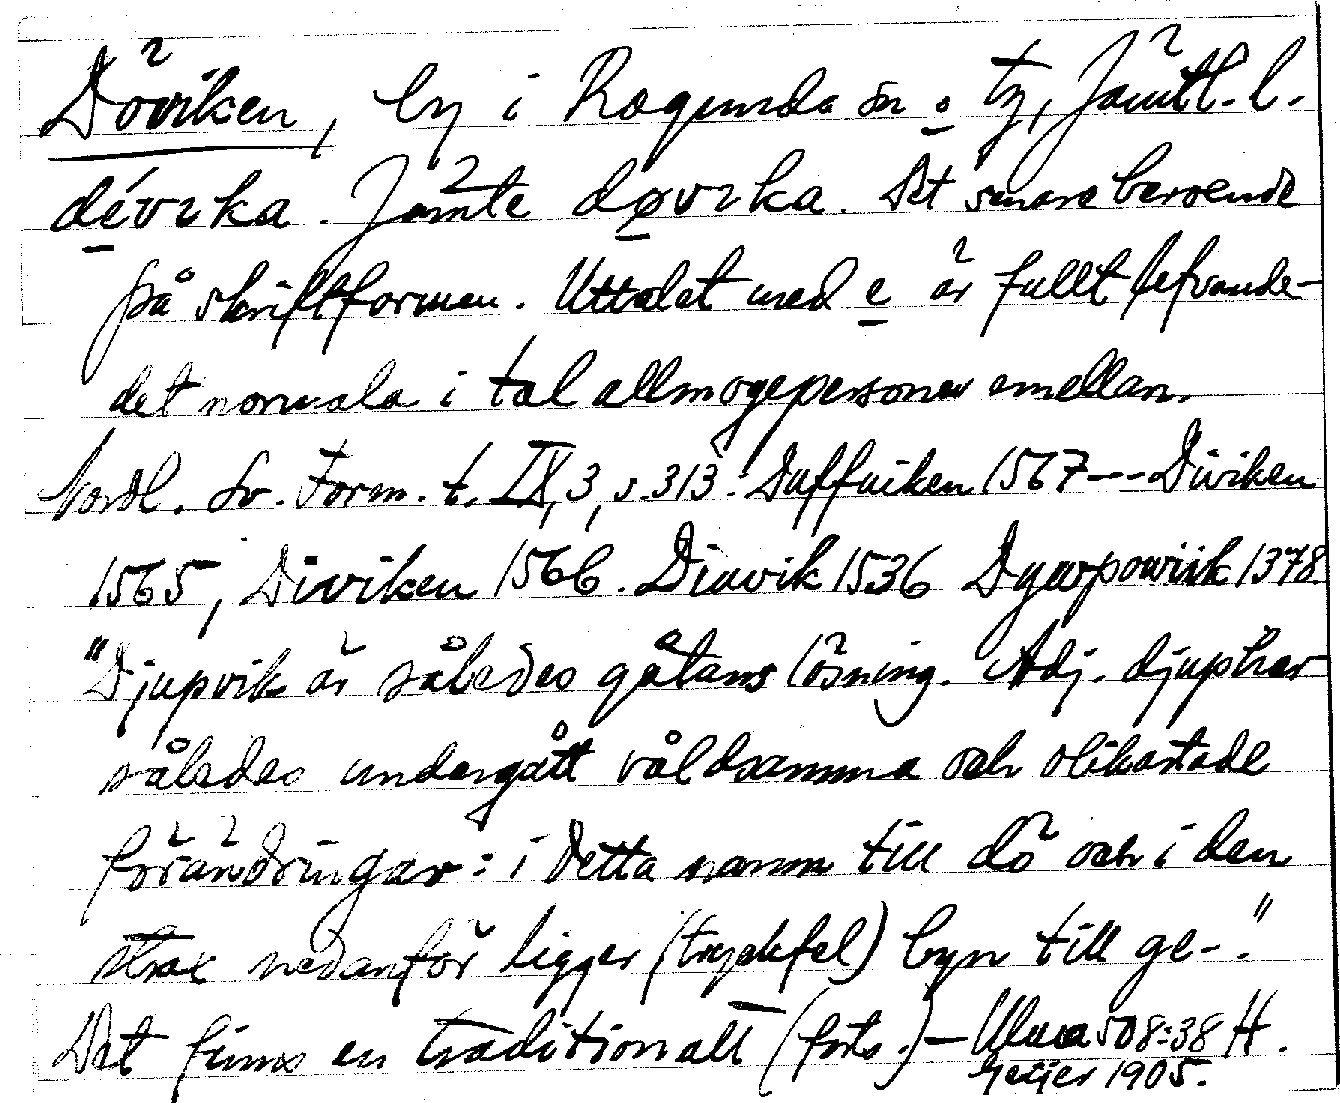 Döviken, by i Ragunda sn o tg, Jämtl. l.
dévıka. Jämte døvıka. Det senare beroende
på skriftformen. Uttalet med e är fullt lefvande -
det normala i tal allmogepersoner emellan.
Nordl. Sv. Form. t. IX, 3, s. 313: Duffuiken 1567 --- Diviken
1565, Diviken 1566. Diuvik 1536 Dywpowiik 1378
"Djupvik är således gåtans lösning. Adj. djup har
således undergått våldsamma och olikartade
förändringar: i detta namn till dö och i den
strax nedanför ligger (tryckfel) byn till ge-."
Det finns en traditionell (forts.) — Ulma 508:38 H.
Geijer 1905.